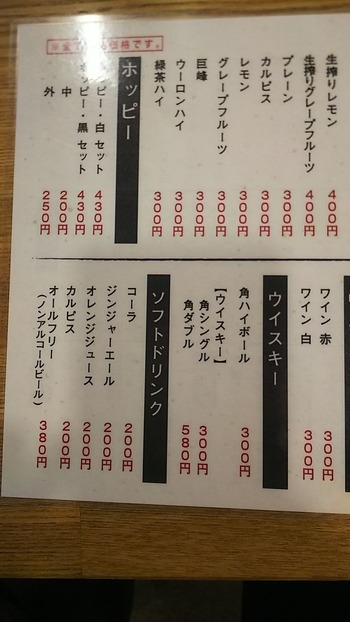 生搾りレモン 400円
生搾りグレープフルーツ 400円
プレーン 300円
カルピス 300円
レモン 300円
グレープフルーツ 300円
巨峰 300円
ウーロンハイ 300円
緑茶ハイ 300円
ホッピー
ピー・白 セット 430円
ッピー・黒 セット 430円
中 200円
外 250円
価格です。
ワイン 赤 300円
ワイン 白 300円
ウイスキー
角ハイボール 300円
【ウイスキー】
角シングル 300円
角ダブル 580円
ソフトドリンク
コーラ 200円
ジンジャーエール 200円
オレンジジュース 200円
カルピス 200円
オールフリー
(ノンアルコールビール) 380円